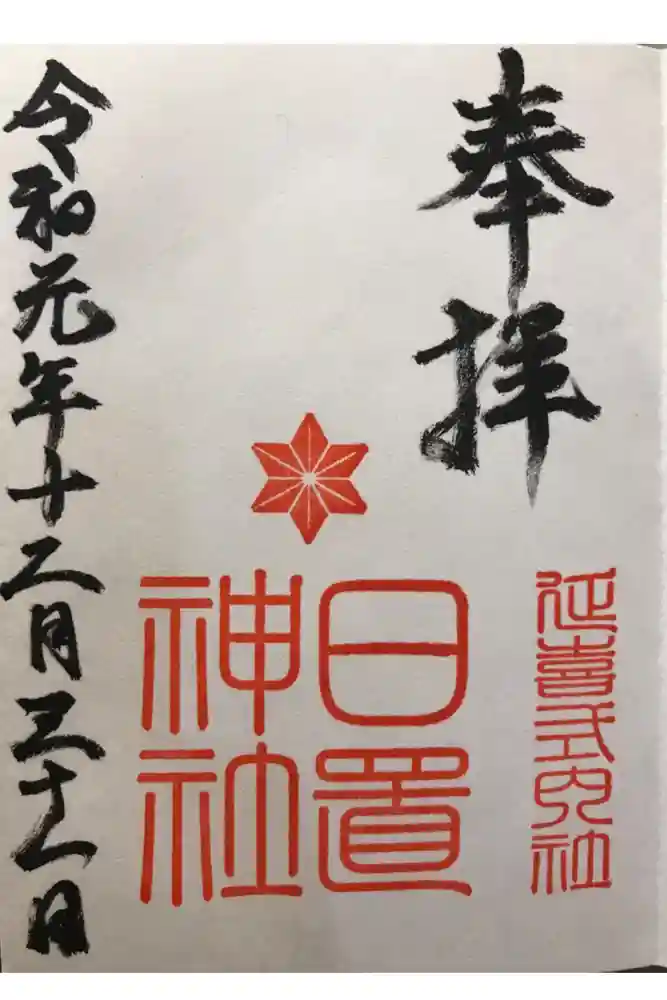 奉拝
延喜式内社
日置
神社
令和元年十二月三十一日